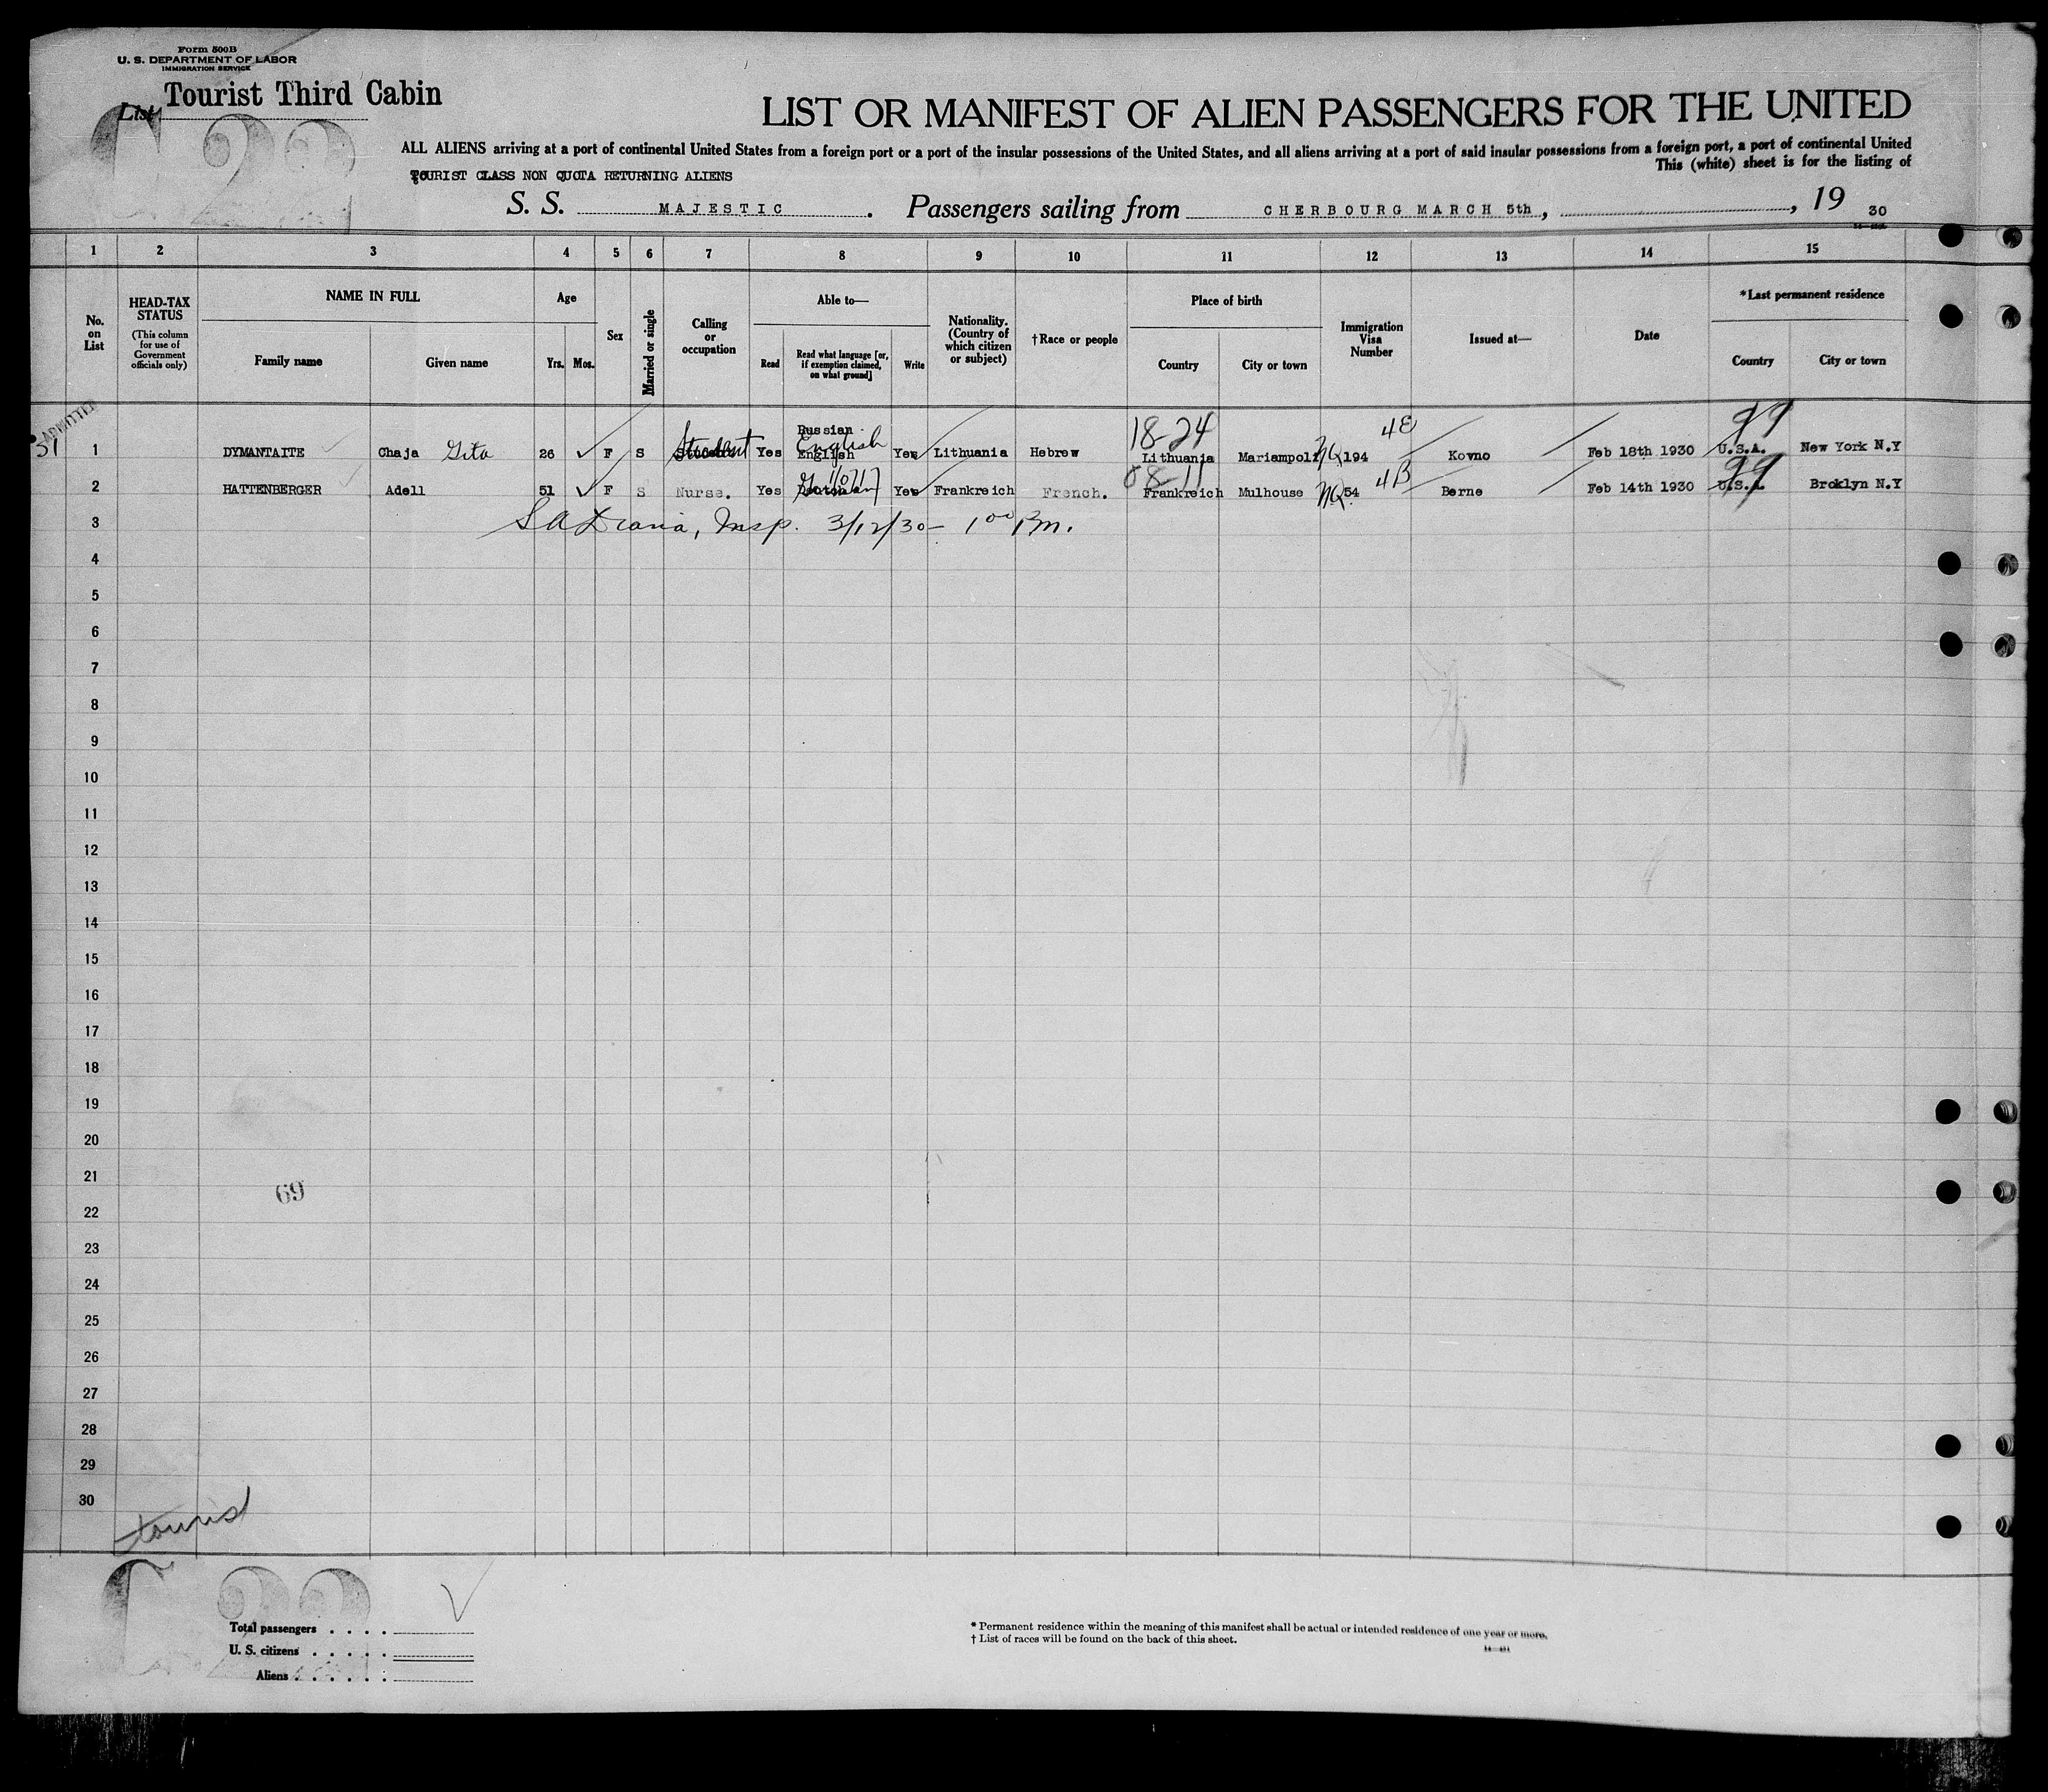 Form 500B
U. S. DEPARTMENT OF LABOR
IMMIGRATION SERVICE
List Tourist Third Cabin
LIST OR MANIFEST OF ALIEN PASSENGERS FOR THE UNITED
ALL ALIENS arriving at a port of continental United States from a foreign port or a port of the insular possessions of the United States, and all aliens arriving at a port of said insular possessions from a foreign port, a port of continental United
This (white) sheet is for the listing of
TOURIST CLASS NON QUOTA RETURNING ALIENS
S. S. MAJESTIC. Passengers sailing from CHERBOURG MARCH 5th, , 19 30
1 2 3 4 5 6 7 8 9 10 11 12 13 14 15
No. on List
HEAD-TAX STATUS
(This column for use of Government officials only)
NAME IN FULL
Family name Given name
Age
Yrs. Mos.
Sex
Married or single
Calling or occupation
Able to—
Read Read what language [or, if exemption claimed, on what ground] Write
Nationality. (Country of which citizen or subject)
†Race or people
Place of birth
Country City or town
Immigration Visa Number
Issued at—
Date
*Last permanent residence
Country City or town
ADMITTED
51
Russian 18-24 4E 99
1 DYMANTAITE Chaja Gita 26 F S Student Yes English English Yes Lithuania Hebrew Lithuania Mariampoli NQ 194 Kovno Feb 18th 1930 U.S.A. New York N.Y
08-11 4B 99
2 HATTENBERGER Adell 51 F S Nurse. Yes German Yes Frankreich French. Frankreich Mulhouse NQ 54 Berne Feb 14th 1930 U.S.A. Brcklyn N.Y
3 Insp. 3/12/30- 1 00 P.m.
4
5
6
7
8
9
10
11
12
13
14
15
16
17
18
19
20
21
69
22
23
24
25
26
27
28
29
30
C 22
Total passengers . . . .
U. S. citizens . . . . .
Aliens . . . . . .
* Permanent residence within the meaning of this manifest shall be actual or intended residence of one year or more.
† List of races will be found on the back of this sheet.